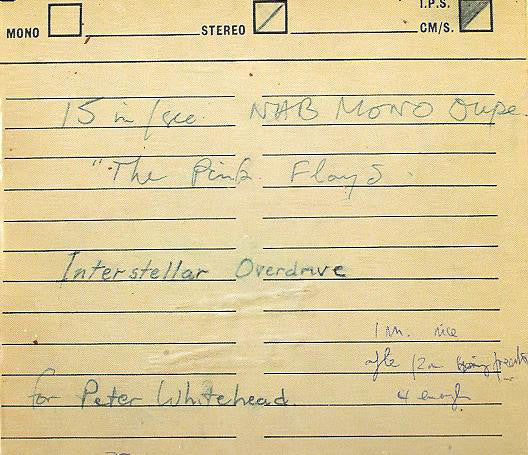 I.P.S.
MONO STEREO CM/S.
15 in/sec. NAB MONO Dupe.
"The Pink Floyd.
Interstellar Overdrive
1 m. nice
for Peter Whitehead.
4 enough